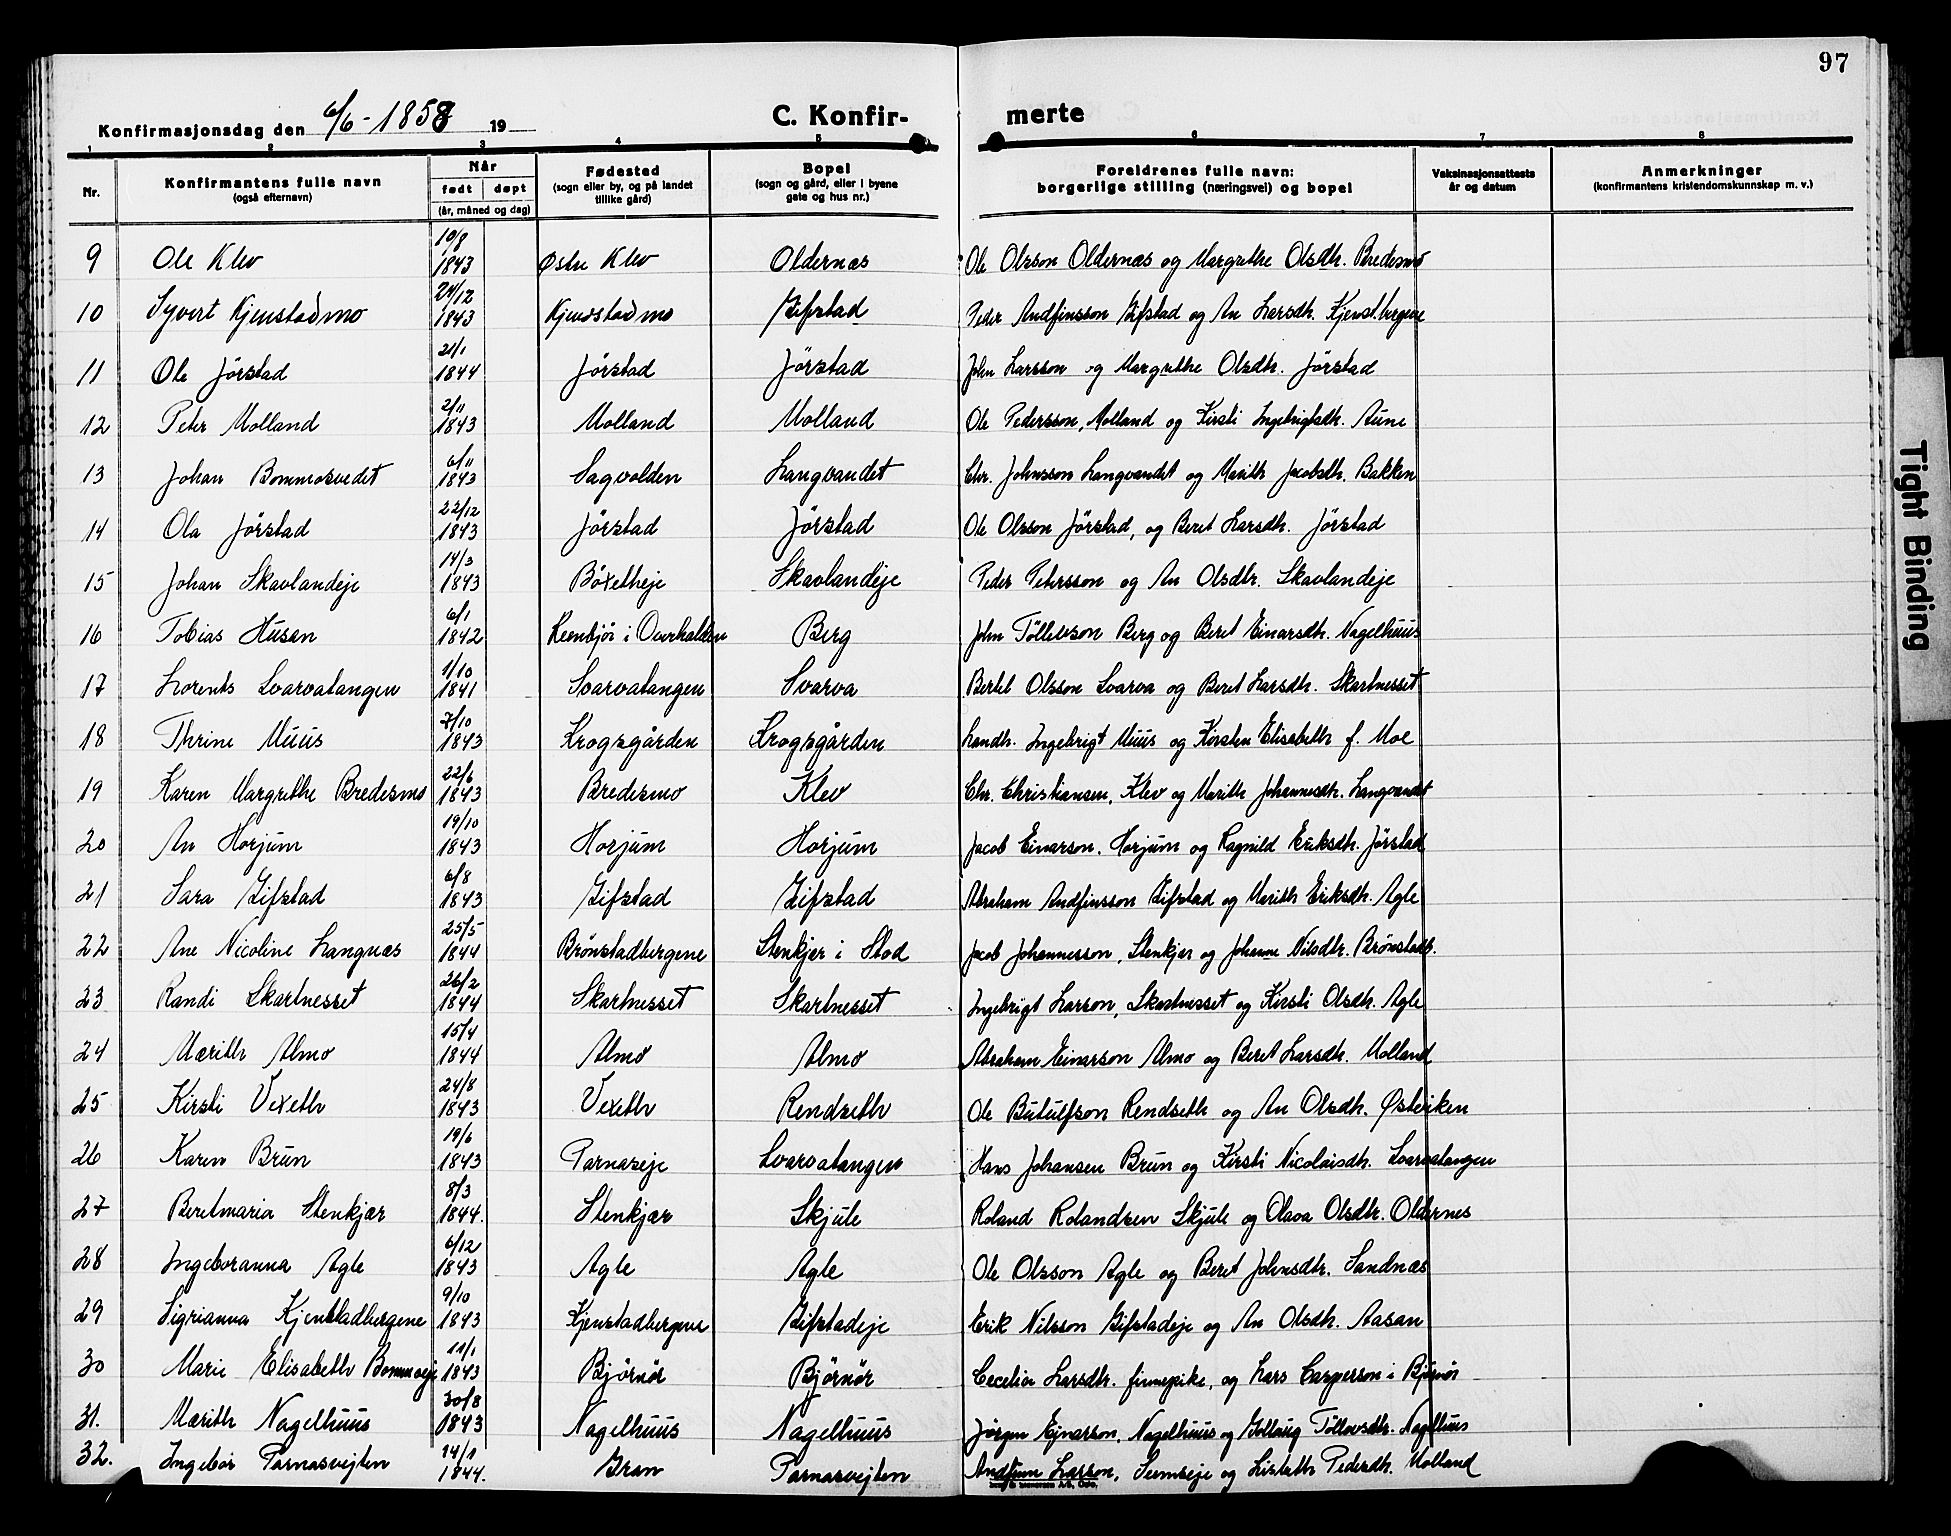 97
Konfirmasjonsdag den 6/6 - 1858 19
C. Konfir- merte
1 2 3 4 5 6 7 8
Nr. Konfirmantens fulle navn (også efternavn) Når født døpt (år, måned og dag) Fødested (sogn eller by, og på landet tillike gård) Bopel (sogn og gård, eller i byene gate og hus nr.) Foreldrenes fulle navn: borgerlige stilling (næringsvei) og bopel Vaksinasjonsattests år og datum Anmerkninger (konfirmantens kristendomskunnskap m. v.)
9 Ole Klev 10/8 1843 Østre Klev Oldernæs Ole Olsson Oldernæs og Margrethe Olsdtr. Bredesmo
10 Syvert Kjenstadmo 24/12 1843 Kjenstadmo Gifstad Peder Andfinsson Gifstad og An Larsdtr. Kjenst.bergene
11 Ole Jörstad 21/1 1844 Jörstad Jörstad John Larsson og Margrethe Olsdtr. Jörstad
12 Peter Molland 2/11 1843 Molland Molland Ole Pedersson, Molland og Kirsti Ingebrigtsdtr. Aune
13 Johan Bommosvedet 6/11 1843 Sagvolden Langvandet Chr. Johnsson Langvandet og Marith Jacobsdtr. Bakken
14 Ola Jörstad 22/12 1843 Jörstad Jörstad Ole Olsson Jörstad, og Beret Larsdtr. Jörstad
15 Johan Skavlandeje 14/3 1843 Bóxetheje Skavlandeje Peder Petersson og An Olsdtr. Skavlandeje
16 Tobias Husan 6/1 1842 i Overhalden Berg John Töllefson Berg og Beret Einarsdtr. Nagelhuus
17 Lorents Svarvatangen 1/10 1841 Svarvatangen Svarva Bertel Olsson Svarva og Beret Larsdtr. Skartnesset
18 Thrine Muus 7/10 1843 Krogsgården Krogsgården Landh. Ingebrigt Muus og Kirsten Elisabeth f. Moe
19 Karen Margrethe Bredesmo 22/6 1843 Bredesmo Klev Chr. Christiansen, Klev og Marith Johannesdtr. Langvandet
20 An Horjum 19/10 1843 Horjum Horjum Jacob Einarson, Horjum og Ragnild Eriksdtr. Jörstad
21 Sara Gifstad 6/8 1843 Gifstad Gifstad Abraham Andfinsson Gifstad og Marith Eriksdtr. Agle
22 Ane Nicoline Langnæs 25/5 1844 Brönstadbergene Stenkjer i Stod Jacob Johannesson, Stenkjer og Johanne Nilsdtr. Brönstadb.
23 Randi Skartnesset 26/2 1844 Skartnesset Skartnesset Ingebrigt Larson, Skartnesset og Kirsti Olsdtr. Agle
24 Mærith Almo 15/4 1844 Almo Almo Abraham Einarson Almo og Beret Larsdtr. Molland
25 Kirsti Vexeth 24/8 1843 Vexeth Rendseth Ole Butulfson Rendseth og An Olsdtr. Østviken
26 Karen Brun 19/6 1843 Parnaseje Svarvatangen Hans Johansen Brun og Kirsti Nicolaisdtr. Svarvatangen
27 Beretmaria Stenkjær 8/3 1844. Stenkjær Skjule Roland Rolandsen Skjule og Olava Olsdtr. Oldernes
28 Ingeboranna Agle 6/12 1843 Agle Agle Ole Olsson Agle og Beret Johnsdtr. Sandnæs
29 Sigrianna Kjenstadbergene 9/10 1843 Kjenstadbergene Gifstadeje Erik Nilsson Gifstadeje og An Olsdtr. Aasan
30 Marie Elisabeth Bommoeje 11/1 1843 Björnör Björnör Cecelia Larsdtr. finnepike, og Lars Casperson i Björnör
31. Mærith Nagelhuus 30/8 1843 Nagelhuus Nagelhuus Jörgen Ejnarsson, Nagelhuus og Gollaug Töllovsdtr. Nagelhuus
32. Ingebor Parnasvejten 14/1 1844. Gran Parnasvejten Larsson, Seemseje og Lisbeth Pedersdtr. Molland
Tight Binding